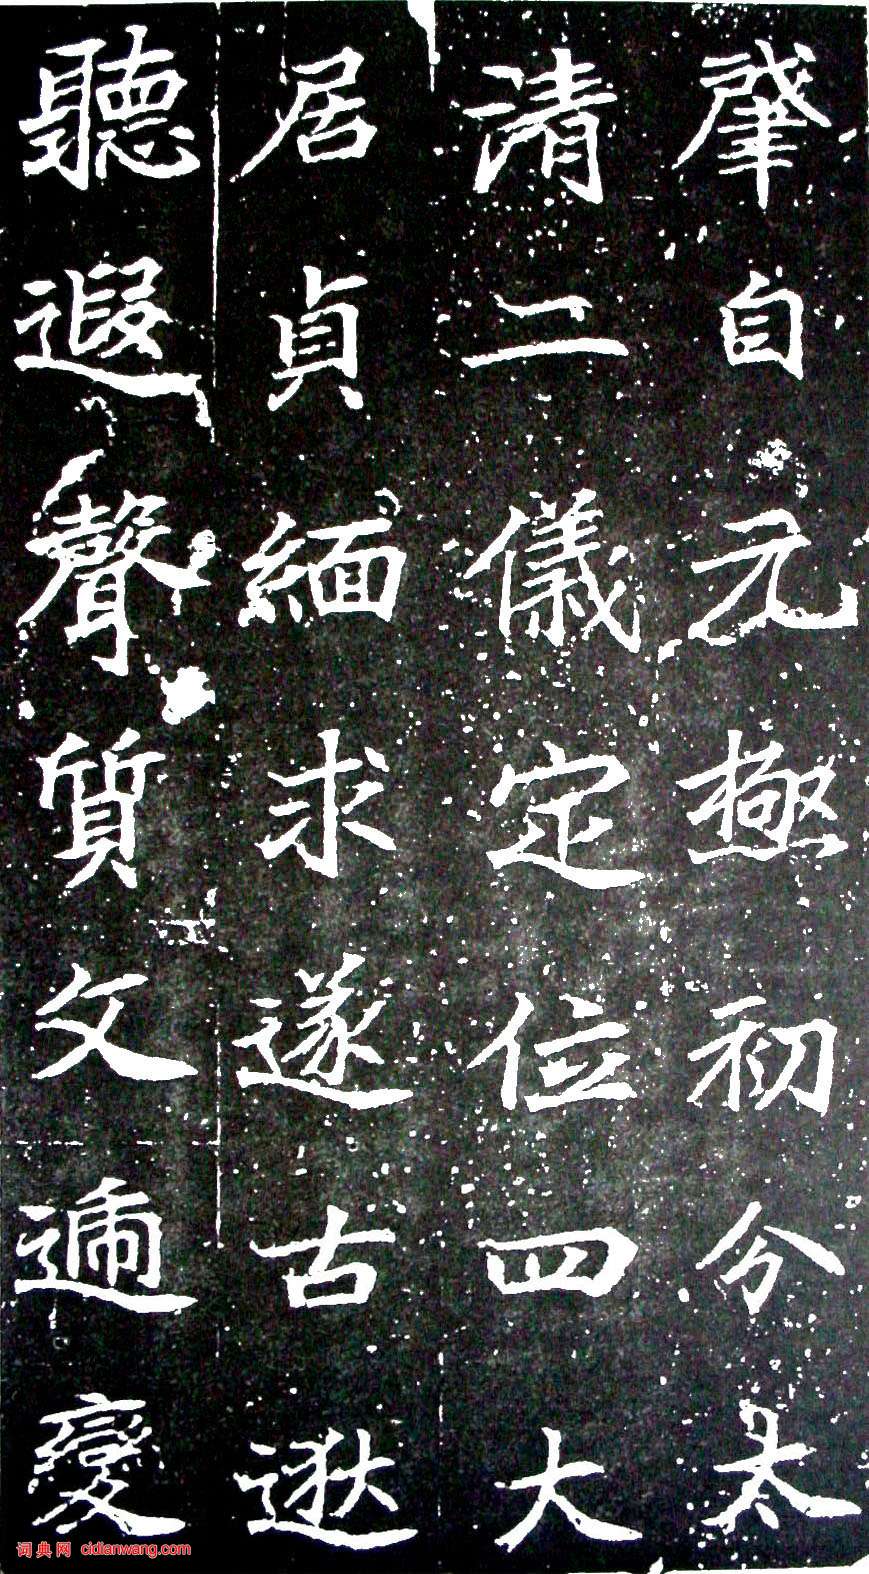 肇自元極初分太
清二儀定位四大
居貞緬求遂古逖
聽遐聲質文遞變
词典网 cidianwang.com